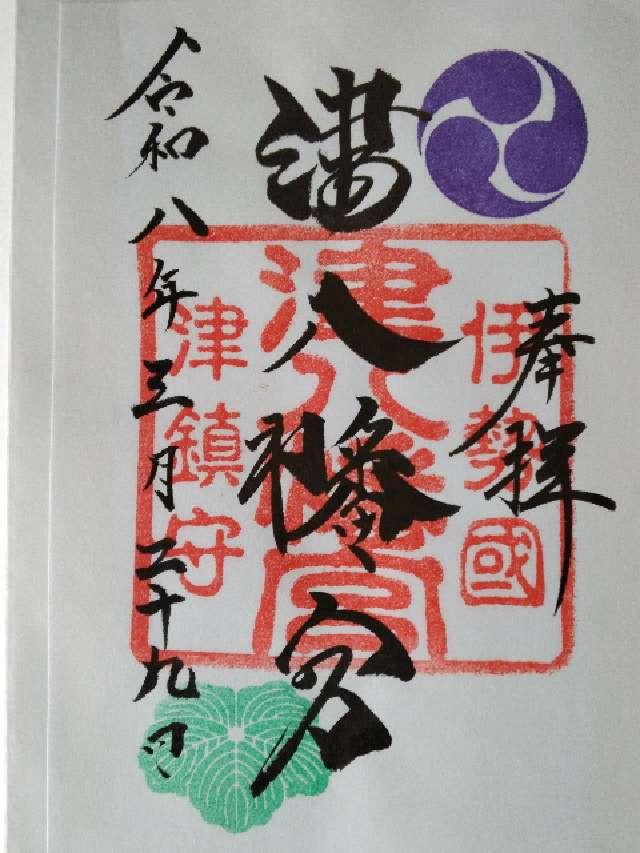 奉拝
伊勢國
津八幡宮
津八幡宮
津鎮守
令和八年三月二十九日